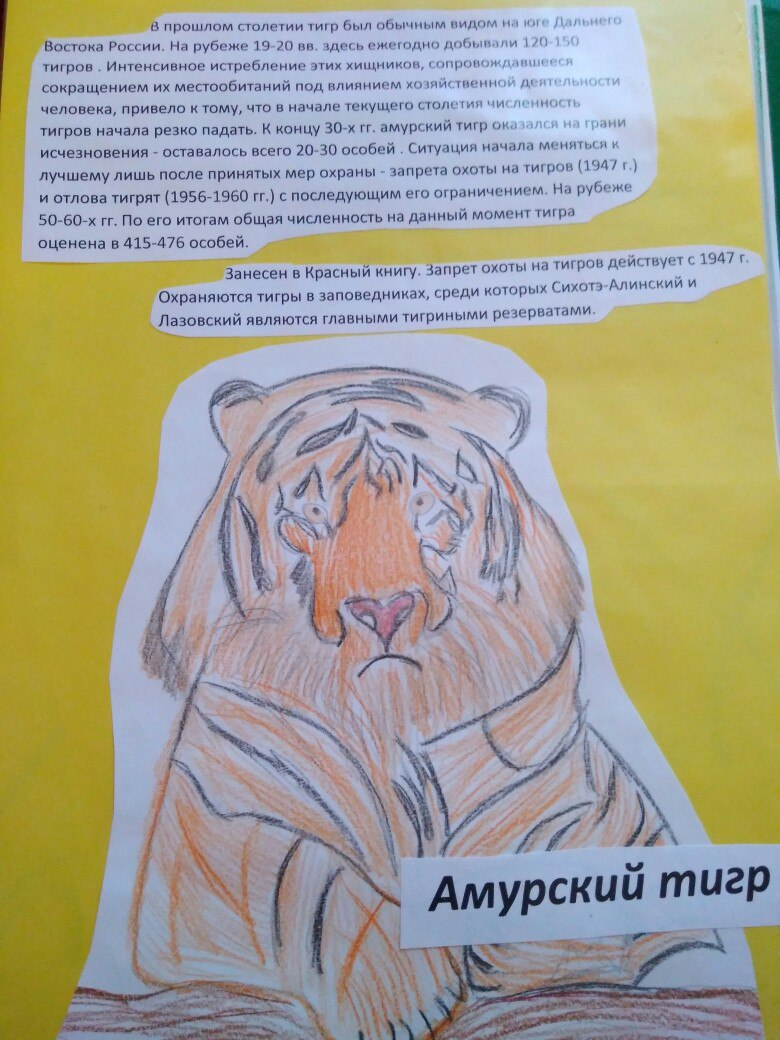 В прошлом столетии тигр был обычным видом на юге Дальнего
Востока России. На рубеже 19-20 вв. здесь ежегодно добывали 120-150
тигров . Интенсивное истребление этих хищников, сопровождавшееся
сокращением их местообитаний под влиянием хозяйственной деятельности
человека, привело к тому, что в начале текущего столетия численность
тигров начала резко падать. К концу 30-х гг. амурский тигр оказался на грани
исчезновения - оставалось всего 20-30 особей . Ситуация начала меняться к
лучшему лишь после принятых мер охраны - запрета охоты на тигров (1947 г.)
и отлова тигрят (1956-1960 гг.) с последующим его ограничением. На рубеже
50-60-х гг. По его итогам общая численность на данный момент тигра
оценена в 415-476 особей.
Занесен в Красный книгу. Запрет охоты на тигров действует с 1947 г.
Охраняются тигры в заповедниках, среди которых Сихотэ-Алинский и
Лазовский являются главными тигриными резерватами.
Амурский тигр